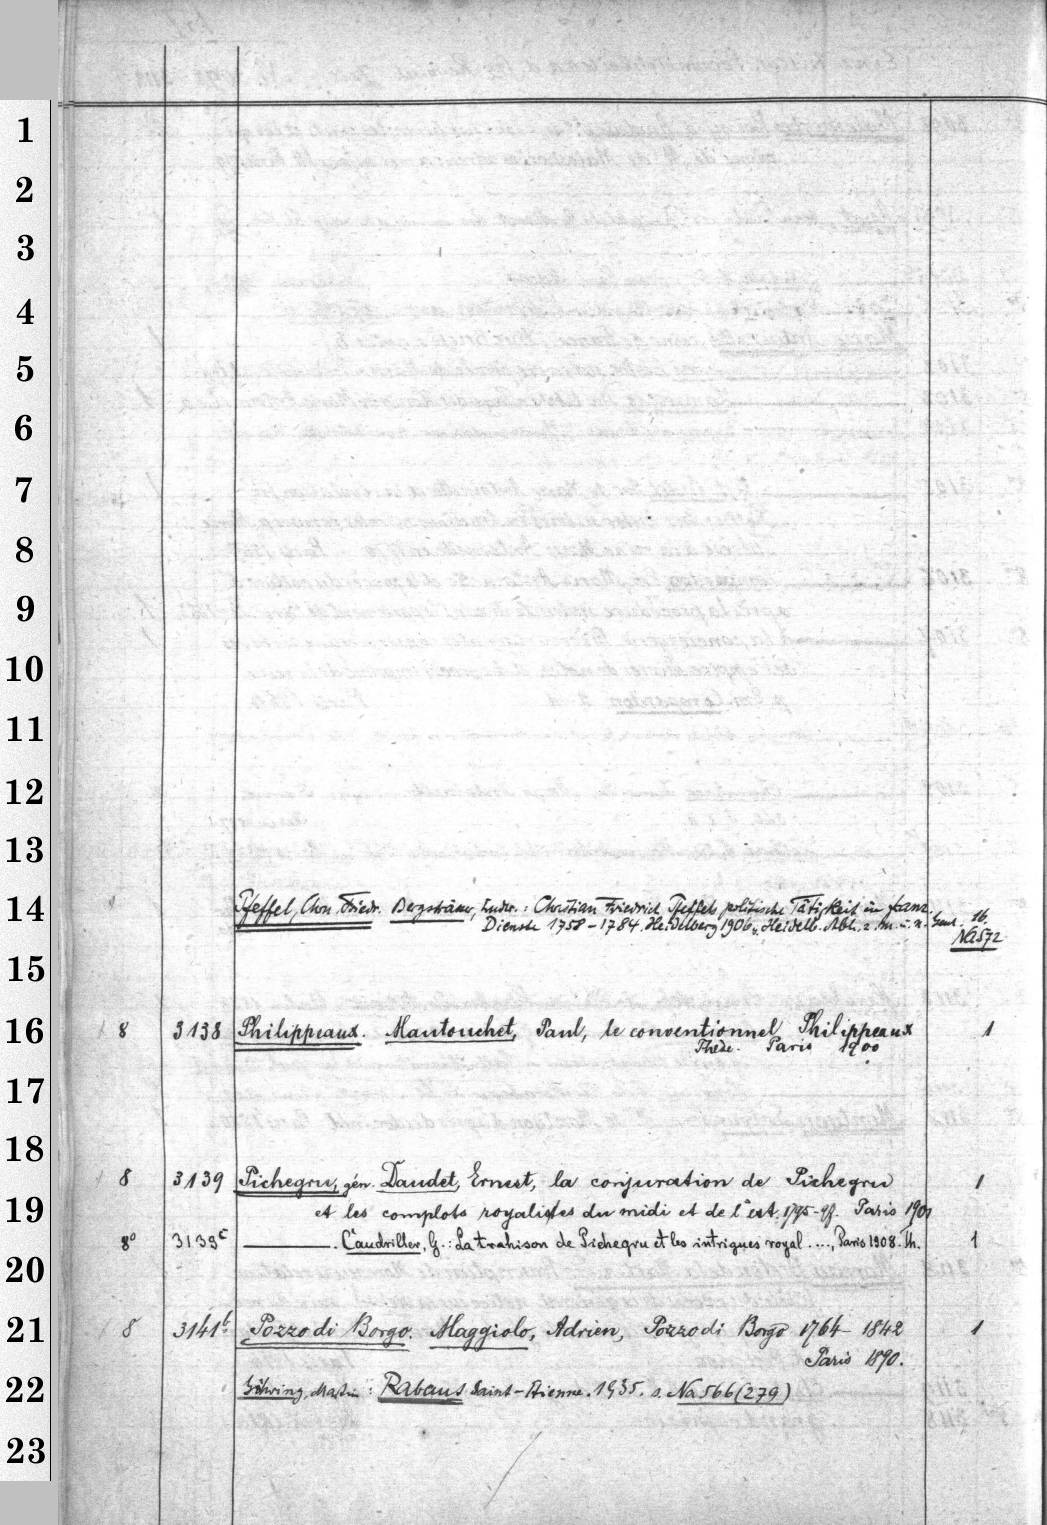 1
2
3
4
5
6
7
8
9
10
11
12
13
14 Pfeffel, Chn Friedr. Bergsträsser, Ludw.: Christian Friedrich Pfeffels politische Tätigkeit in franz.
Dienste 1758-1784. Heidelberg 1906. Heidelb. Abh. z. m. u. n. Gesch. 16.
Na 572
15
16 8 3138 Philippeaux. Mautouchet, Paul, le conventionnel Philippeaux 1
Thèse. Paris 1900
17
18 8 3139 Pichegru, gén. Daudet, Ernest, la conjuration de Pichegru 1
19 et les complots royalistes du midi et de l'est, 1795-97. Paris 1901
8º 3139c ———. Caudrillier, G.: La trahison de Pichegru et les intrigues royal...., Paris 1908. Th. 1
20
21 8 3141b. Pozzo di Borgo. Maggiolo, Adrien, Pozzo di Borgo 1764-1842 1
Paris 1890.
22 Göhring, Martin: Rabaut Saint-Etienne. 1935. s. Na 566 (279)
23